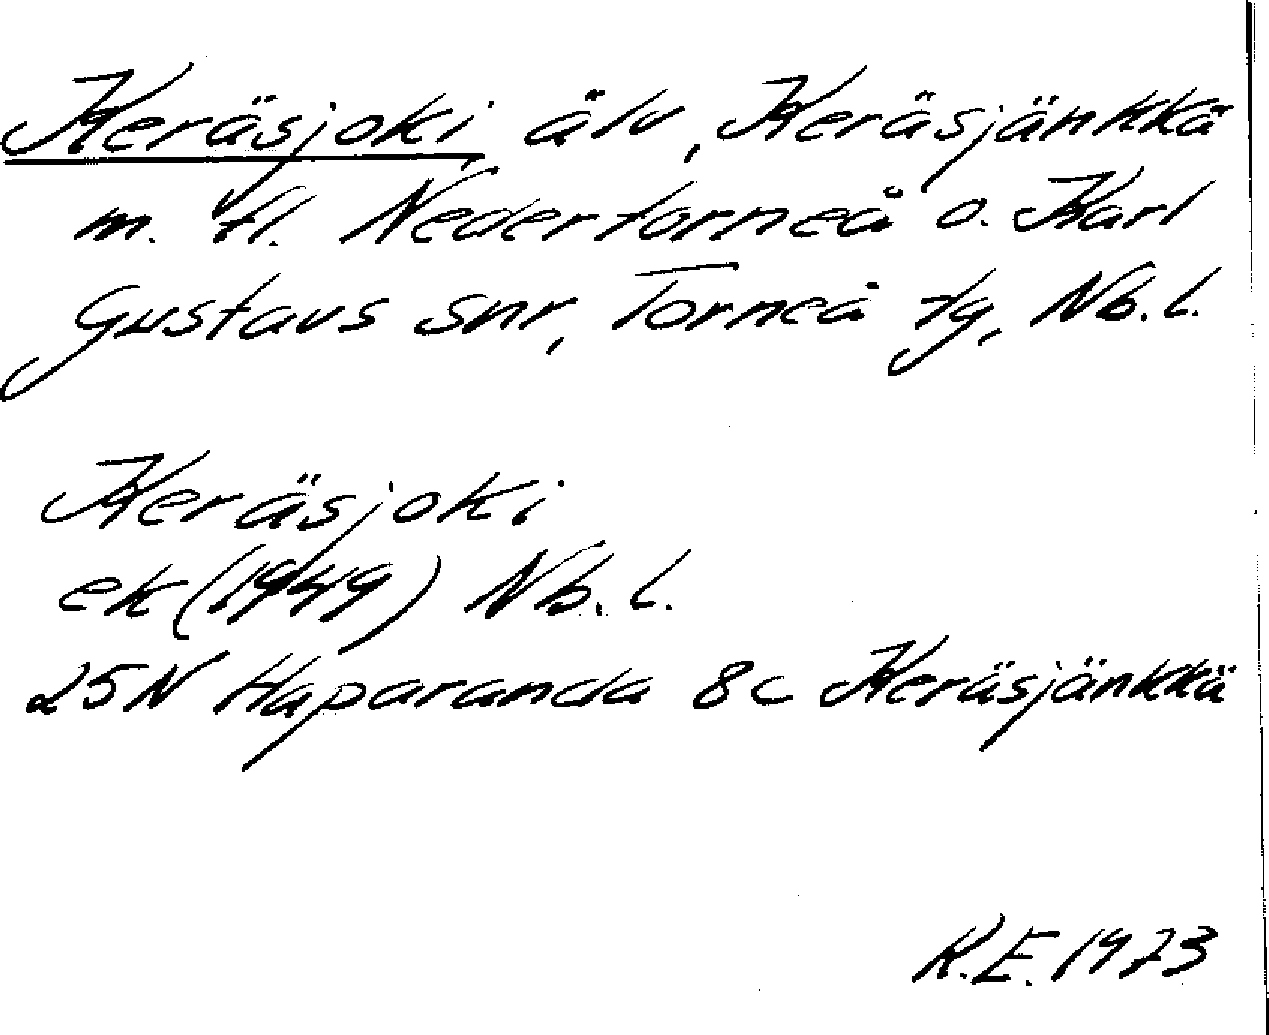 Keräsjoki, älv, Keräsjänkkä
m. fl. Nedertorneå o. Karl
Gustavs snr, Torneå tg, Nb.l.
Keräsjoki
ek (1949) Nb.l.
25N Haparanda 8c Keräsjänkkä
K.E. 1973